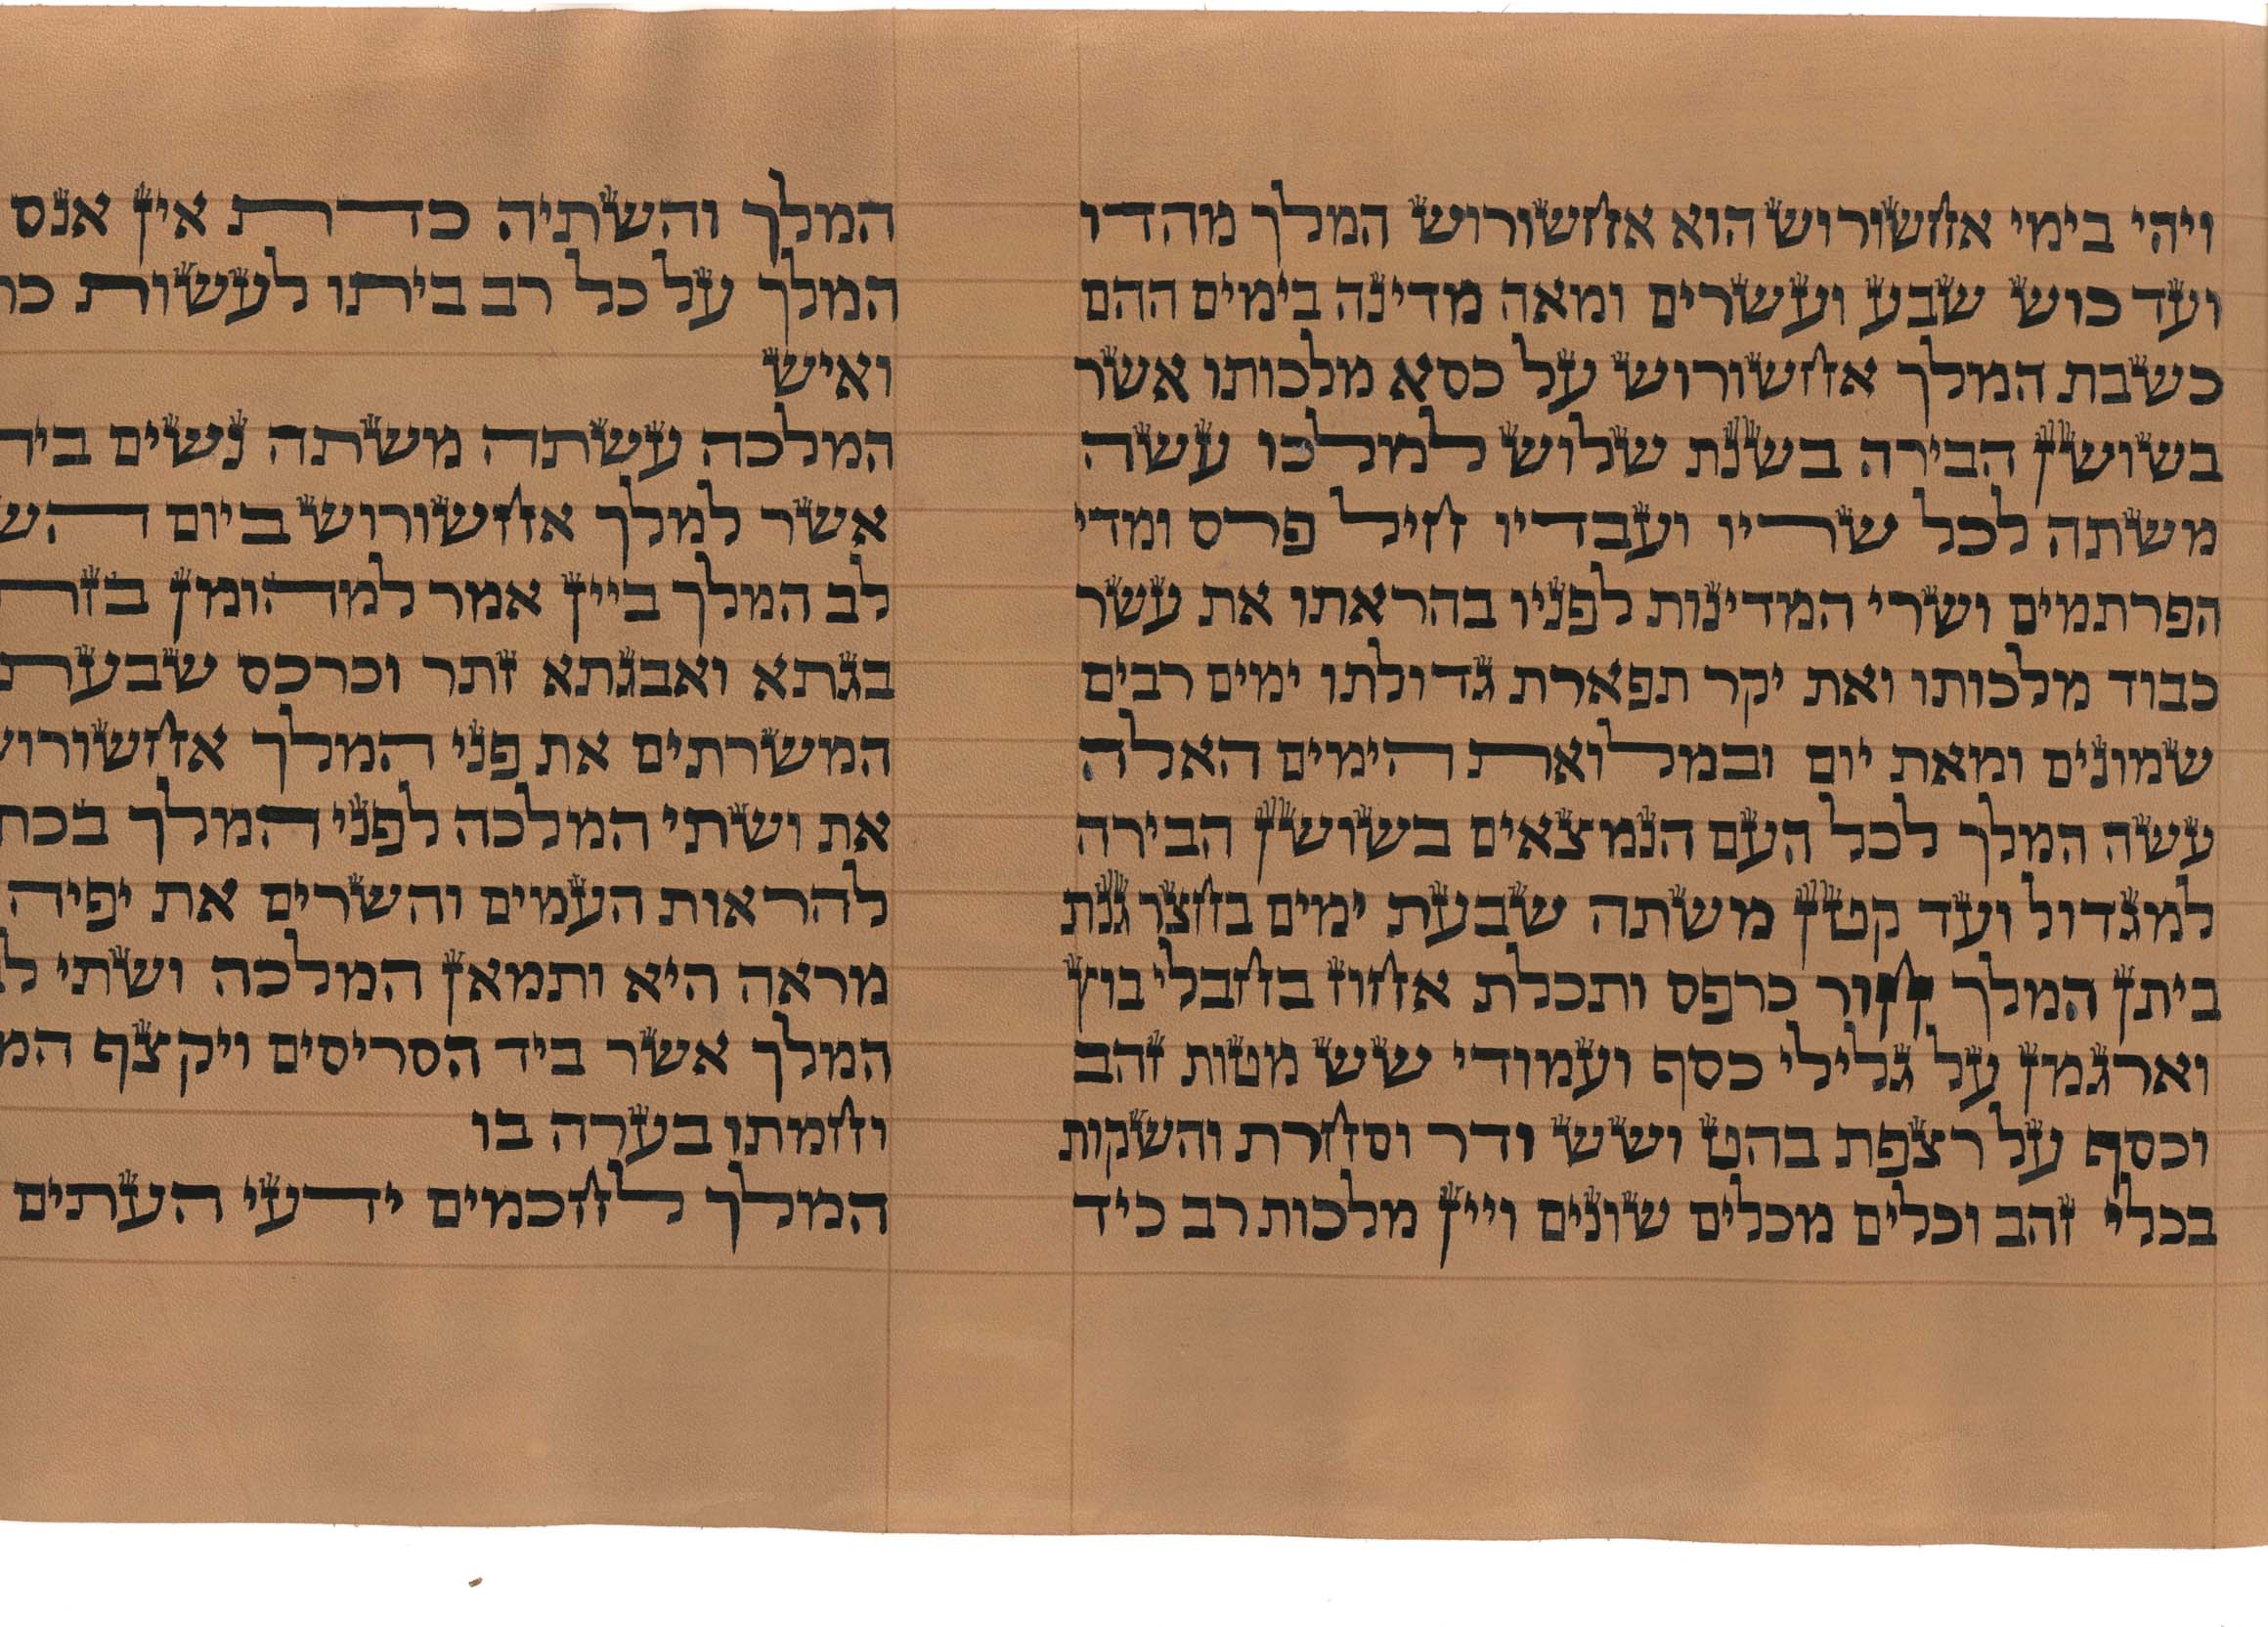 ויהי בימי אחשורוש הוא אחשורוש המלך מהדו
ועד כוש שבע ועשרים ומאה מדינה בימים ההם
כשבת המלך אחשורוש על כסא מלכותו אשר
בשושן הבירה בשנת שלוש למלכו עשה
משתה לכל שריו ועבדיו חיל פרס ומדי
הפרתמים ושרי המדינות לפניו בהראתו את עשר
כבוד מלכותו ואת יקר תפארת גדולתו ימים רבים
שמונים ומאת יום ובמלואת הימים האלה
עשה המלך לכל העם הנמצאים בשושן הבירה
למגדול ועד קטן משתה שבעת ימים בחצר גנת
ביתן המלך חור כרפס ותכלת אחוז בחבלי בוץ
וארגמן על גלילי כסף ועמודי שש מטות זהב
וכסף על רצפת בהט ושש ודר וסחרת והשקות
בכלי זהב וכלים מכלים שונים ויין מלכות רב כיד
המלך והשתיה כדת אין אנס
המלך על כל רב ביתו לעשות
ואיש
המלכה עשתה משתה נשים
אשר למלך אחשורוש ביום
לב המלך ביין אמר למהומן
בגתא ואבגתא זתר וכרכס שבעת
המשרתים את פני המלך אחשורוש
את ושתי המלכה לפני המלך
להראות העמים והשרים את יפיה
מראה היא ותמאן המלכה ושתי
המלך אשר ביד הסריסים ויקצף
וחמתו בערה בו
המלך לחכמים ידעי העתים